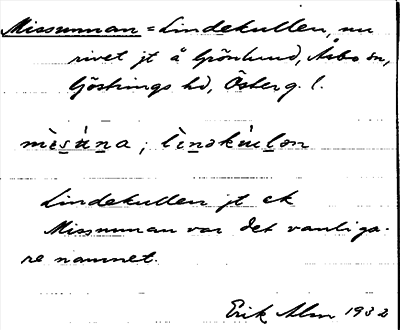 Missunnan = Lindekullen, nu
rivet jt å Grönlund, Asbo sn,
Göstrings hd, Österg. l.
mìsúna, lìndəkúlən
Lindekullen jt ck
Missunnan var det vanliga-
re namnet.
Erik Alm 1932